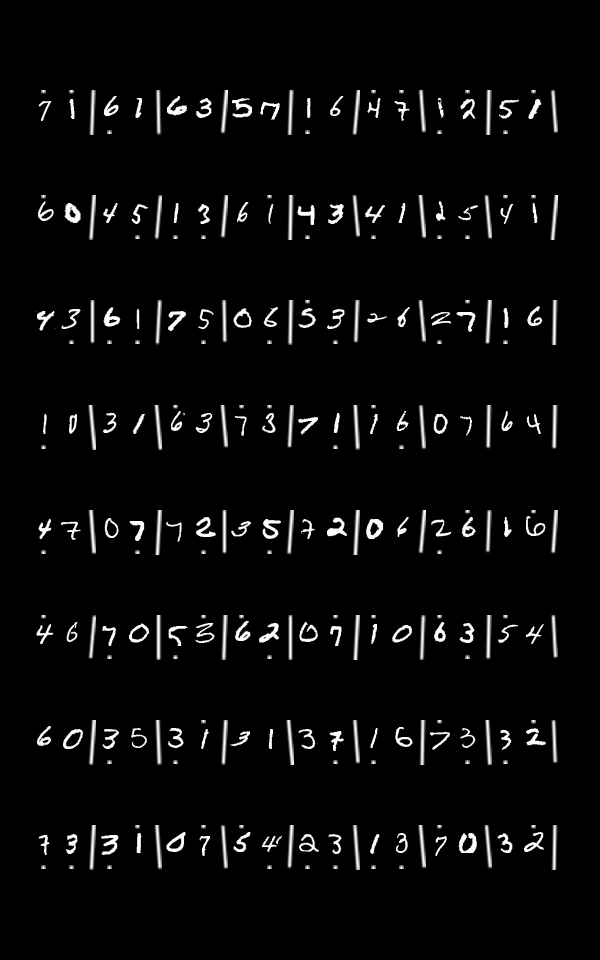 7̇ 1̇ | 6̣ 1 | 6 3 | 5 7 | 1̣ 6 | 4̇ 7̇ | 1̣ 2̇ | 5̣ 1̇ |
6̇ 0 | 4 5̣ | 1̣ 3̣ | 6 1̇ | 4̣ 3 | 4̣ 1 | 2̣ 5̣ | 4̇ 1̇ |
4 3̣ | 6̣ 1 | 7 5̣ | 0 6̣ | 5̇ 3̣ | 2 6̣ | 2̣ 7̇ | 1̣ 6 |
1̣ 0 | 3 1 | 6̇ 3 | 7̇ 3̇ | 7 1̣ | 1̇ 6̣ | 0 7 | 6 4 |
4̣ 7 | 0 7̣ | 7 2̣ | 3 5̣ | 7 2 | 0 6 | 2̣ 6̇ | 1 6̇ |
4̇ 6 | 7̣ 0 | 5̣ 3̇ | 6̇ 2̣ | 0 7̇ | 1̇ 0 | 6 3̣ | 5̇ 4 |
6 0 | 3̣ 5 | 3̣ 1̇ | 3 1 | 3 7̣ | 1̣ 6 | 7̇ 3̣ | 3̣ 2̇ |
7̣ 3̣ | 3̣ 1̇ | 0 7̇ | 5̇ 4̣ | 2 3̣ | 1̣ 3̣ | 7̇ 0 | 3 2̇ |